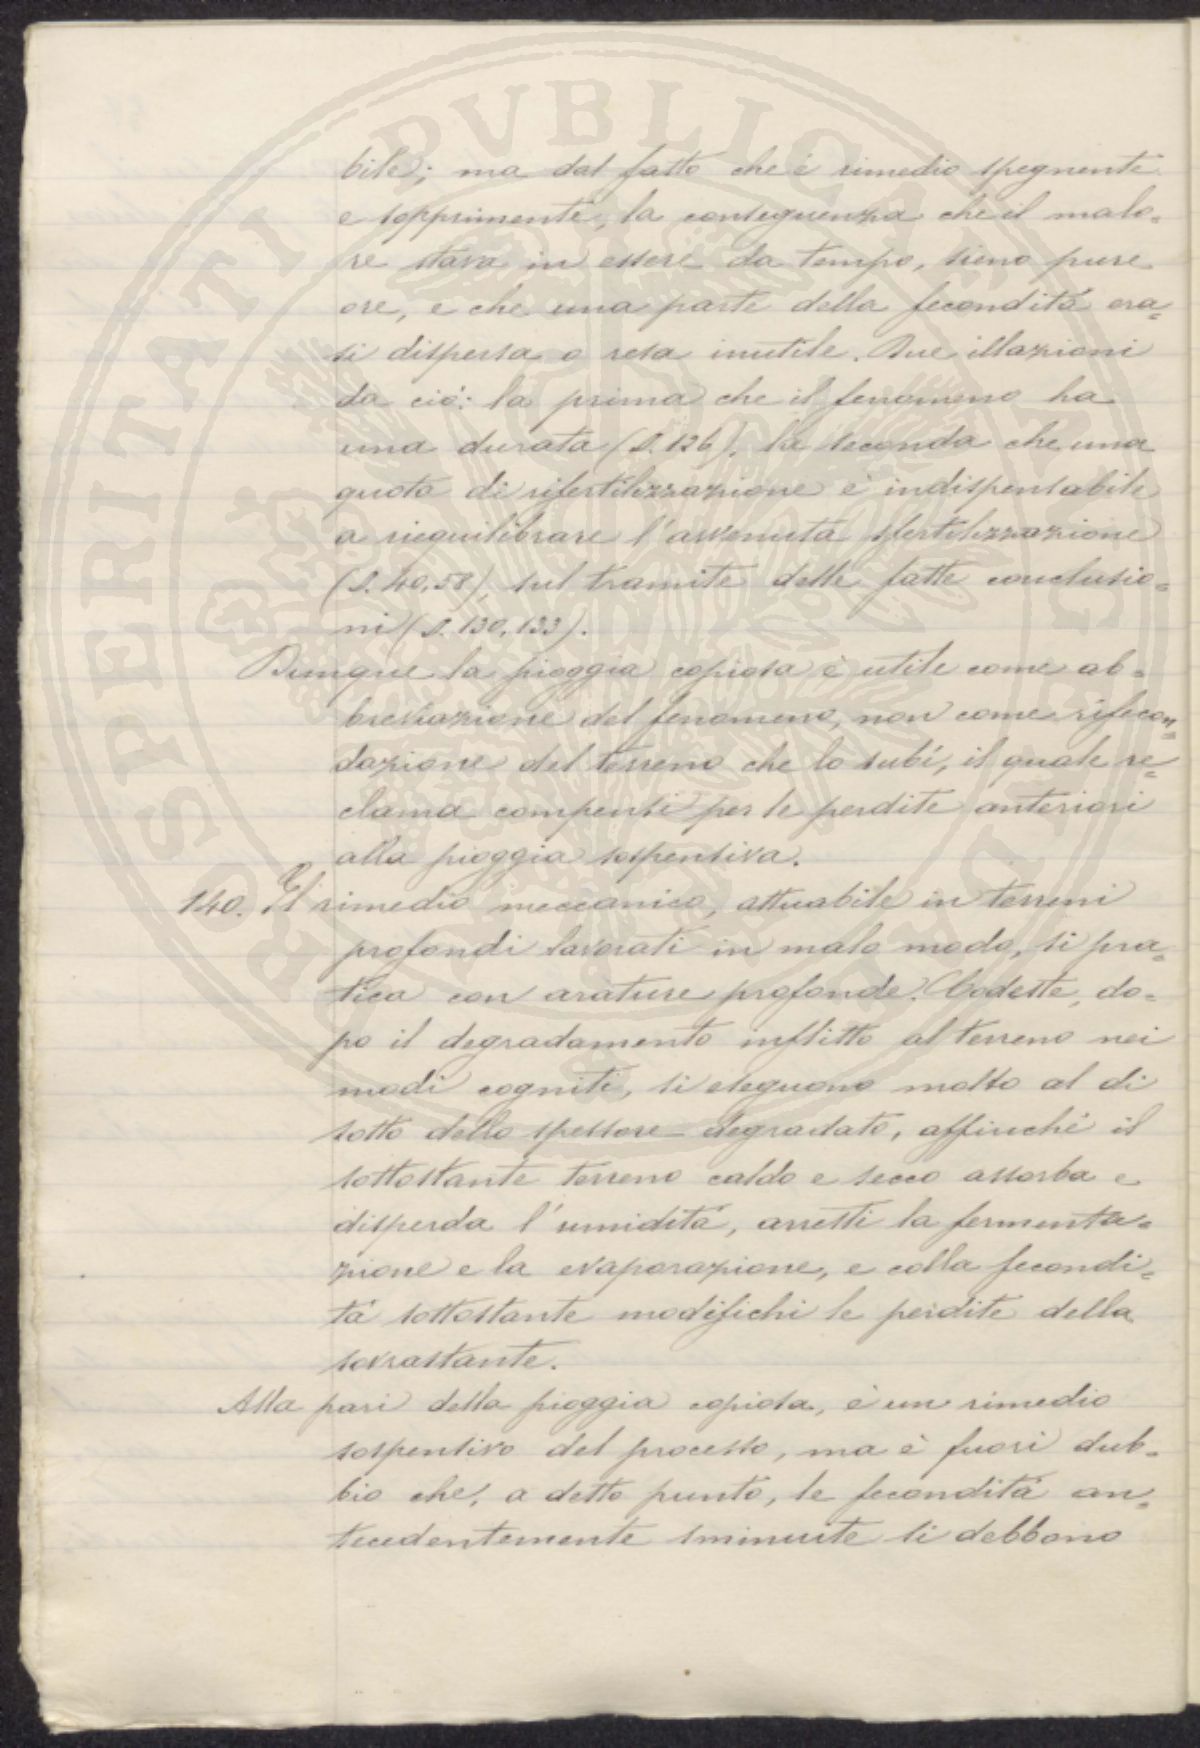 bile; ma dal fatto che è rimedio spegnente
e sopprimente, la conseguenza che il malo=
re stava in essere da tempo, sieno pure
ore, e che una parte della fecondità era=
si dispersa o resa inutile. Due illazioni
da ciò: la prima che il fenomeno ha
una durata (§. 126), la seconda che una
quota di rifertilizzazione è indispensabile
a riequilibrare l'avvenuta sfertilizzazione
(§. 40, 58), sul tramite delle fatte conclusio=
ni (§. 130, 133).
Dunque la pioggia copiosa è utile come ab=
breviazione del fenomeno, non come rifecon=
dazione del terreno che lo subì, il quale re=
clama compensi per le perdite anteriori
alla pioggia sospensiva.
140. Il rimedio meccanico, attuabile in terreni
profondi lavorati in malo modo, si pra=
tica con arature profonde. Codeste, do=
po il degradamento inflitto al terreno nei
modi cogniti, si eseguono molto al di
sotto dello spessore degradato, affinchè il
sottostante terreno caldo e secco assorba e
disperda l'umidità, arresti la fermenta=
zione e la evaporazione, e colla fecondi=
tà sottostante modifichi le perdite della
sovrastante.
Alla pari della pioggia copiosa, è un rimedio
sospensivo del processo, ma è fuori dub=
bio che, a detto punto, le fecondità an=
tecedentemente sminuite si debbono
PROSPERITATI PVBLICAE